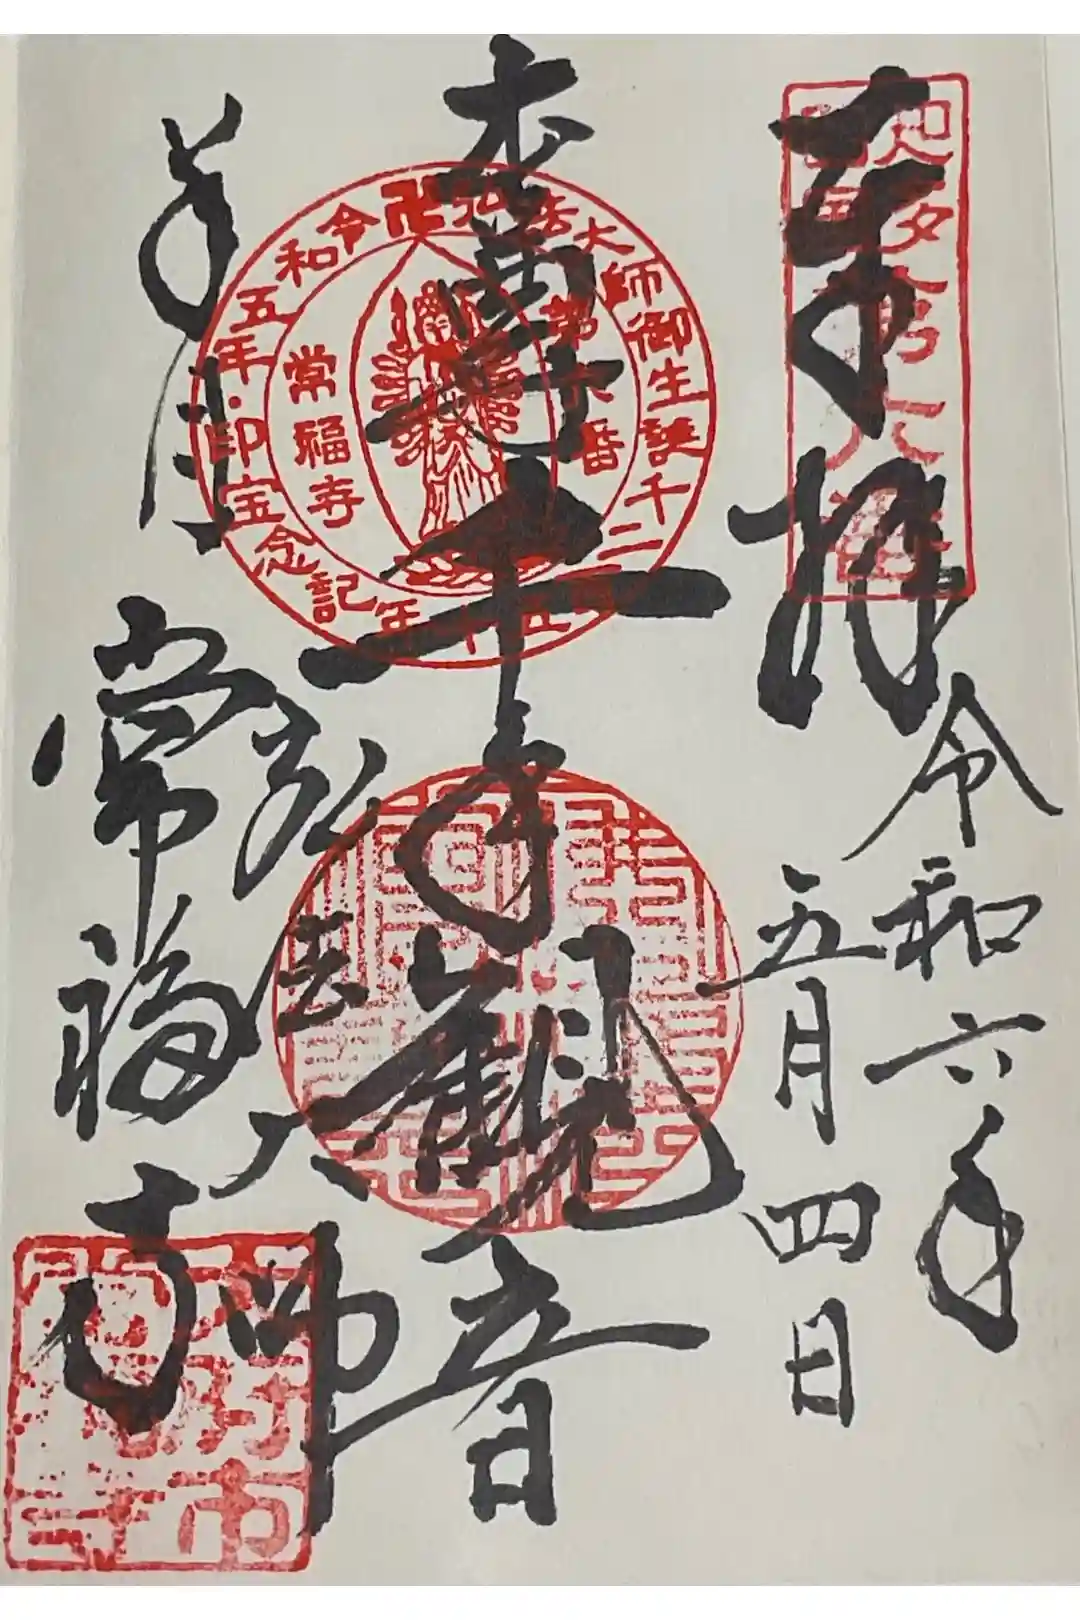 奉拝
令和六年
五月四日
本尊
千手観音
弘法大師
半月
常福寺
弘法大師御生誕千二百五十年記念宝印
令和五年
第六番
常福寺
大府市